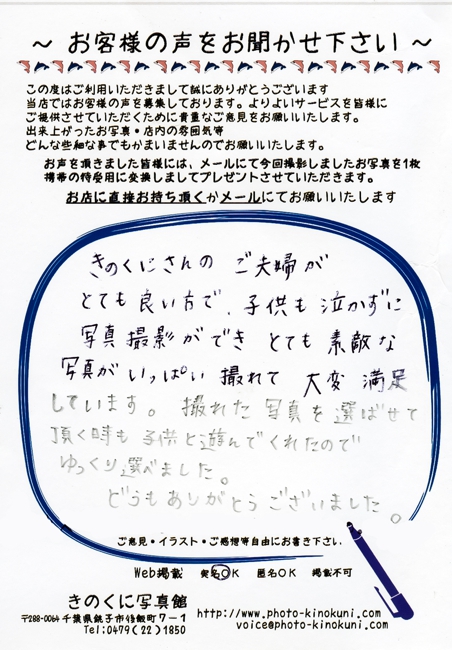 ～ お客様の声をお聞かせ下さい ～
この度はご利用いただきまして誠にありがとうございます
当店ではお客様の声を募集しております。よりよいサービスを皆様に
ご提供させていただくために貴重なご意見をお願いいたします。
出来上がったお写真・店内の雰囲気等
どんな些細な事でもかまいませんのでお願いいたします。
お声を頂きました皆様には、メールにて今回撮影しましたお写真を1枚
携帯の待受用に変換しましてプレゼントさせていただきます。
お店に直接お持ち頂くかメールにてお願いいたします
きのくにさんの ご夫婦が
とても良い方で、子供も泣かずに
写真撮影ができ とても素敵な
写真がいっぱい撮れて 大変満足
しています。撮れた写真を選ばせて
頂く時も子供と遊んでくれたので
ゆっくり選べました。
どうもありがとうございました。
ご意見・イラスト・ご感想等自由にお書き下さい
Web掲載 実名OK 匿名OK 掲載不可
きのくに写真館
〒288-0064 千葉県銚子市後飯町7－1
Tel:0479(22)1850
http://www.photo-kinokuni.com/
voice@photo-kinokuni.com